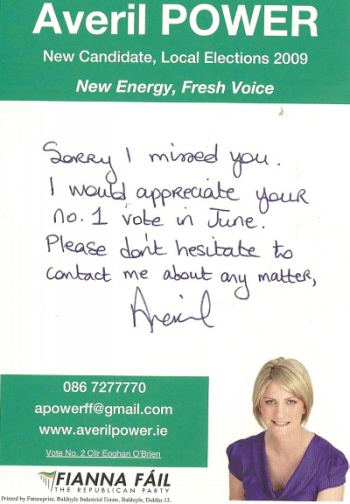 Averil POWER
New Candidate, Local Elections 2009
New Energy, Fresh Voice
Sorry I missed you.
I would appreciate your
no. 1 vote in June.
Please don't hesitate to
contact me about any matter,
Averil
086 7277770
apowerff@gmail.com
www.averilpower.ie
Vote No. 2 Cllr Eoghan O'Brien
FIANNA FÁIL
THE REPUBLICAN PARTY
Printed by Futureprint, Baldoyle Industrial Estate, Baldoyle, Dublin 13.